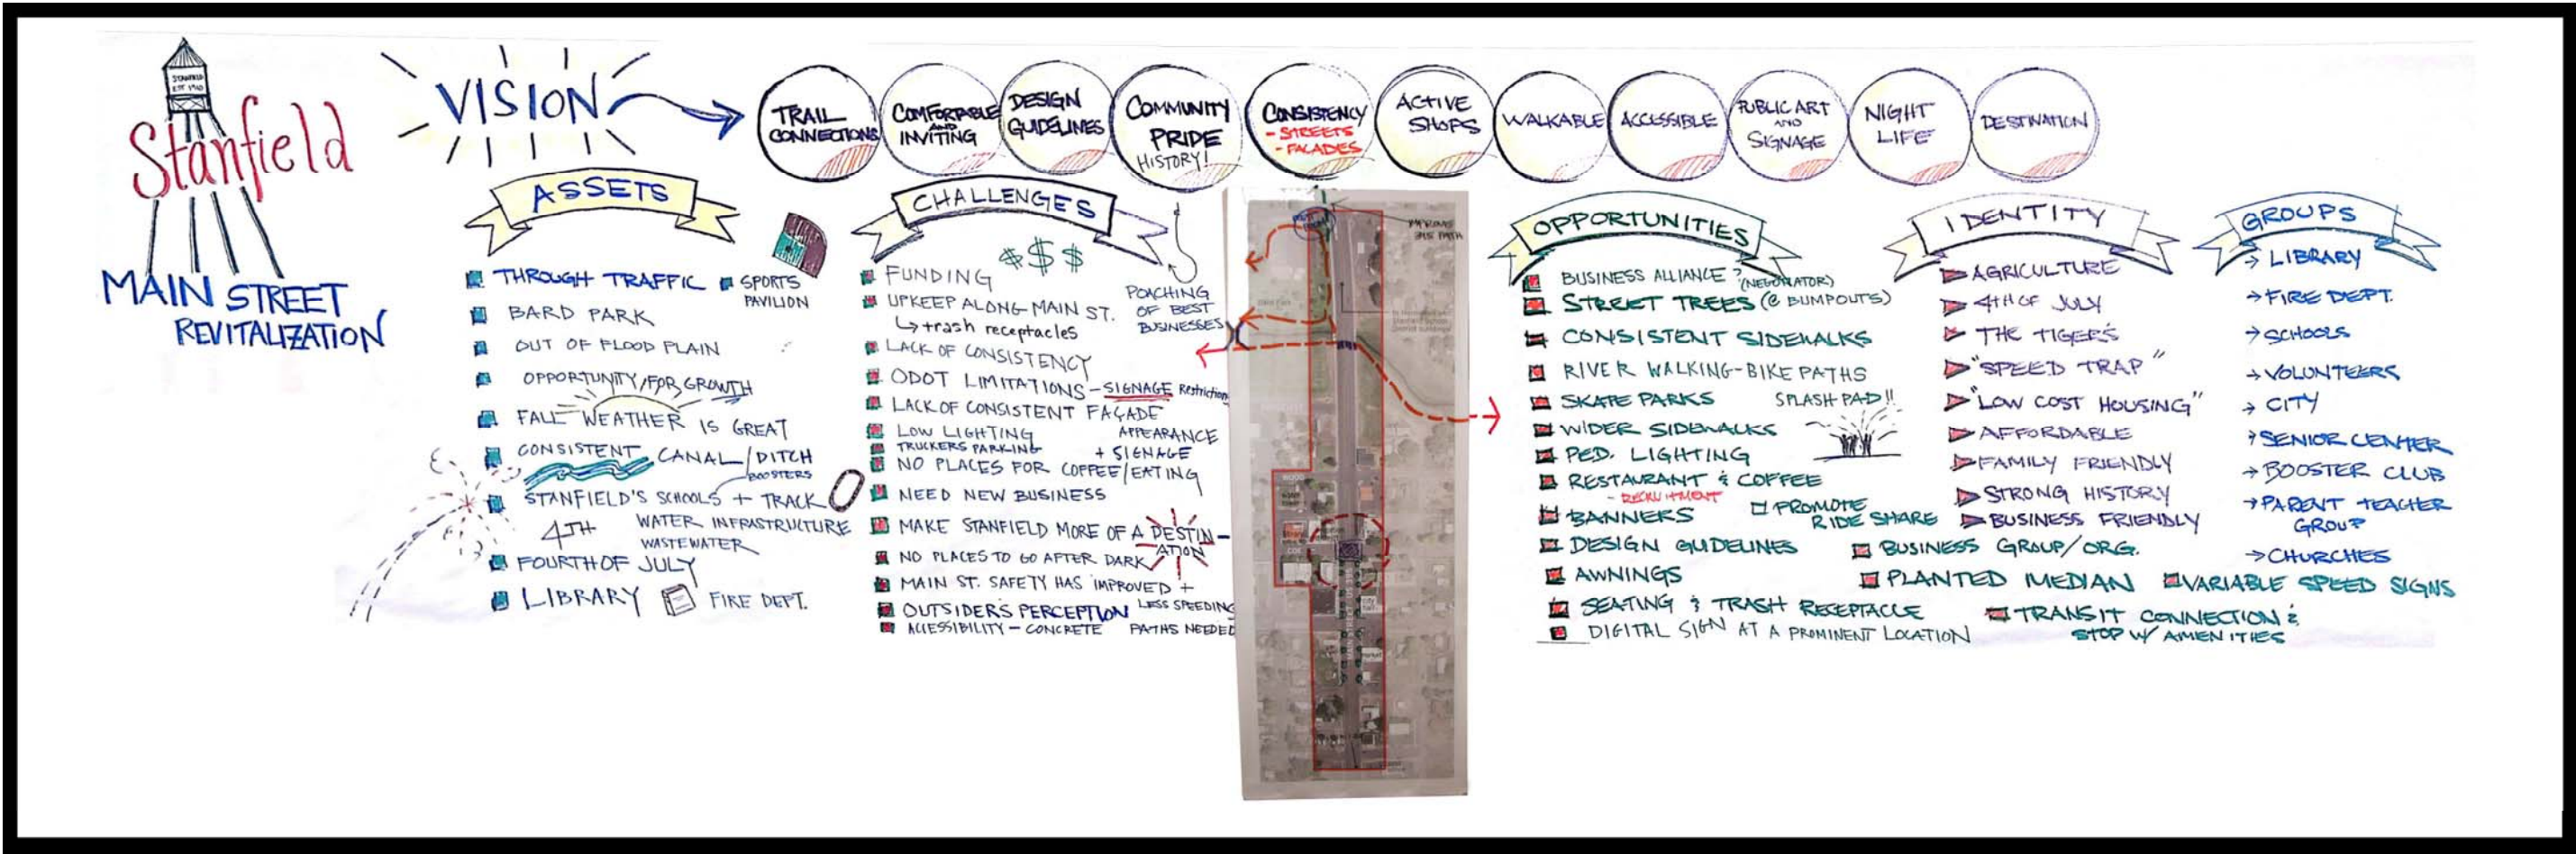 STANFIELD
EST 1910
Stanfield
MAIN STREET
REVITALIZATION
VISION
TRAIL
CONNECTIONS
COMFORTABLE
AND
INVITING
DESIGN
GUIDELINES
COMMUNITY
PRIDE
HISTORY!
CONSISTENCY
- STREETS
- FACADES
ACTIVE
SHOPS
WALKABLE
ACCESSIBLE
PUBLIC ART
AND
SIGNAGE
NIGHT
LIFE
DESTINATION
ASSETS
THROUGH TRAFFIC
SPORTS
PAVILION
BARD PARK
OUT OF FLOOD PLAIN
OPPORTUNITY/FOR GROWTH
FALL WEATHER IS GREAT
CONSISTENT CANAL/DITCH
BOOSTERS
STANFIELD'S SCHOOLS + TRACK
4TH
WATER INFRASTRUCTURE
WASTEWATER
FOURTH OF JULY
LIBRARY
FIRE DEPT.
CHALLENGES
$$$
FUNDING
UPKEEP ALONG MAIN ST.
↳ trash receptacles
POACHING
OF BEST
BUSINESSES
LACK OF CONSISTENCY
ODOT LIMITATIONS - SIGNAGE Restriction
LACK OF CONSISTENT FAÇADE
APPEARANCE
+ SIGNAGE
LOW LIGHTING
TRUCKERS PARKING
NO PLACES FOR COFFEE/EATING
NEED NEW BUSINESS
MAKE STANFIELD MORE OF A DESTIN-
ATION
NO PLACES TO GO AFTER DARK
MAIN ST. SAFETY HAS IMPROVED +
LESS SPEEDING
OUTSIDER'S PERCEPTION
ACCESSIBILITY - CONCRETE PATHS NEEDED
OPPORTUNITIES
BUSINESS ALLIANCE? (NEGOTIATOR)
STREET TREES (@ BUMPOUTS)
CONSISTENT SIDEWALKS
RIVER WALKING-BIKE PATHS
SKATE PARKS
SPLASH PAD!!
WIDER SIDEWALKS
PED. LIGHTING
RESTAURANT & COFFEE
- RECRUITMENT
BANNERS
PROMOTE
RIDE SHARE
DESIGN GUIDELINES
BUSINESS GROUP/ORG.
AWNINGS
PLANTED MEDIAN
VARIABLE SPEED SIGNS
SEATING & TRASH RECEPTACLE
TRANSIT CONNECTION &
STOP W/ AMENITIES
DIGITAL SIGN AT A PROMINENT LOCATION
IDENTITY
AGRICULTURE
4TH OF JULY
THE TIGER'S
"SPEED TRAP"
"LOW COST HOUSING"
AFFORDABLE
FAMILY FRIENDLY
STRONG HISTORY
BUSINESS FRIENDLY
GROUPS
→ LIBRARY
→ FIRE DEPT.
→ SCHOOLS
→ VOLUNTEERS
→ CITY
→ SENIOR CENTER
→ BOOSTER CLUB
→ PARENT TEACHER
GROUP
→ CHURCHES